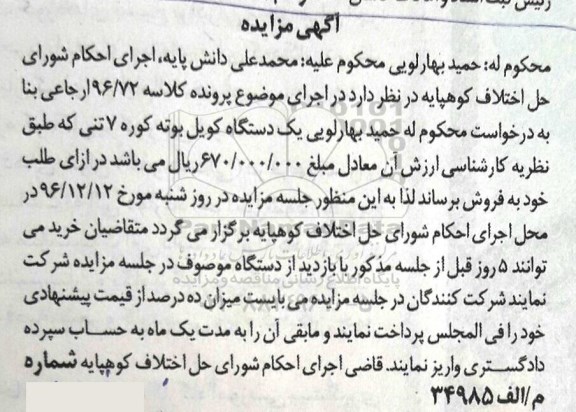 آگهی مزایده
محکوم له: حمید بهارلویی محکوم علیه: محمدعلی دانش پایه، اجرای احکام شورای
حل اختلاف کوهپایه در نظر دارد در اجرای موضوع پرونده کلاسه ۹۶/۷۲ ارجاعی بنا
به درخواست محکوم له حمید بهارلویی یک دستگاه کویل بوته کوره ۷ تنی که طبق
نظریه کارشناسی ارزش آن معادل مبلغ ۶۷۰/۰۰۰/۰۰۰ ریال می باشد در ازای طلب
خود به فروش برساند لذا به این منظور جلسه مزایده در روز شنبه مورخ ۹۶/۱۲/۱۲ در
محل اجرای احکام شورای حل اختلاف کوهپایه برگزار می گردد متقاضیان خرید می
توانند ۵ روز قبل از جلسه مذکور با بازدید از دستگاه موصوف در جلسه مزایده شرکت
نمایند شرکت کنندگان در جلسه مزایده می بایست میزان ده درصد از قیمت پیشنهادی
خود را فی المجلس پرداخت نمایند و مابقی آن را به مدت یک ماه به حساب سپرده
دادگستری واریز نمایند. قاضی اجرای احکام شورای حل اختلاف کوهپایه شماره
م/الف ۳۴۹۸۵